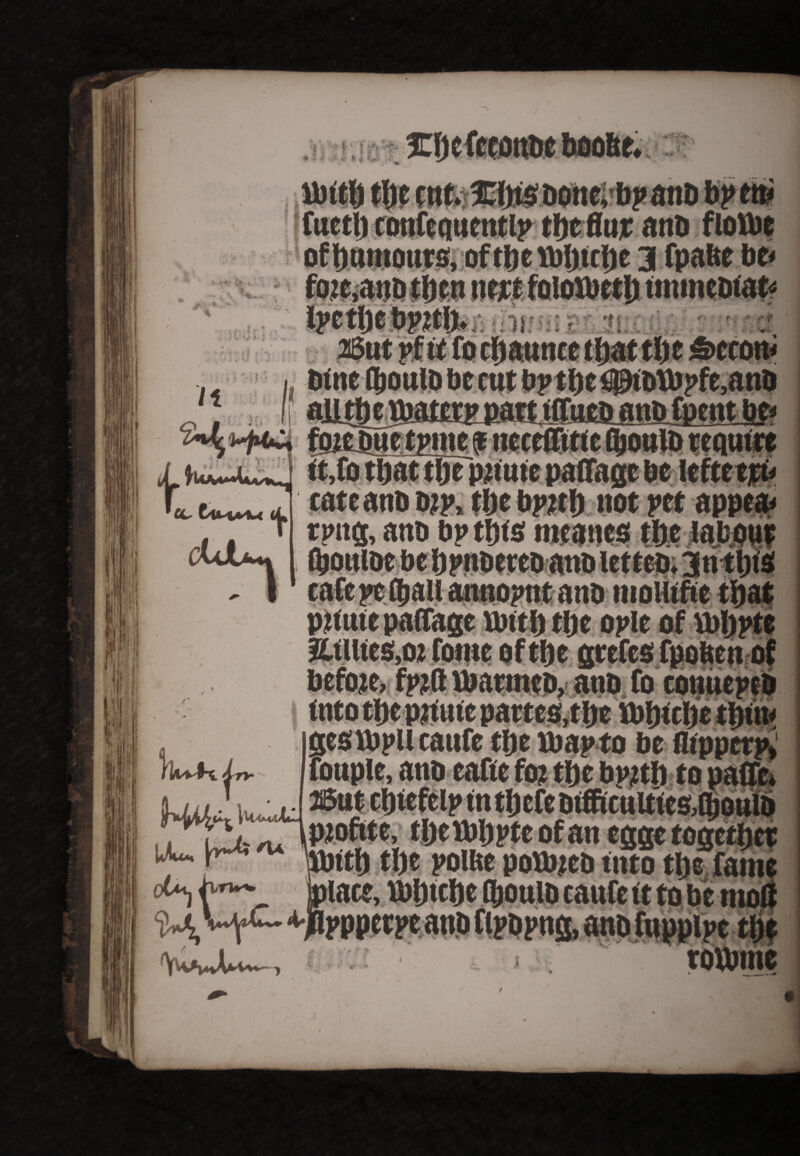 The seconde booke.
with the cut. This done, by and by en-
sueth consequently the flux and flowe
of humours, of the whiche I spake be-
fore, and then next foloweth immediat-
ly the byrth.
But yf it so chaunce that the Secon-
dine should be cut by the Midwyfe, and
all the watery part issued and spent be-
fore due tyme & necessitie should require
it, so that the priuie passage be lefte exi-
cate and dry, the byrth not yet appea-
ryng, and by this meanes the labour
shoulde be hyndered and letted: In this
case ye shall annoynt and mollifie that
priuie passage with the oyle of whyte
Lillies, or some of the greses spoken of
before, fyrst warmed, and so conueyed
into the priuie partes, the whiche thin-
ges wyll cause the way to be slippery,
souple, and easie for the byrth to passe.
But chiefely in these difficulties, should
profite, the whyte of an egge together
with the yolke powred into the same
place, whiche should cause it to be most
slyppperye and slydyng, and supplye the
rowme